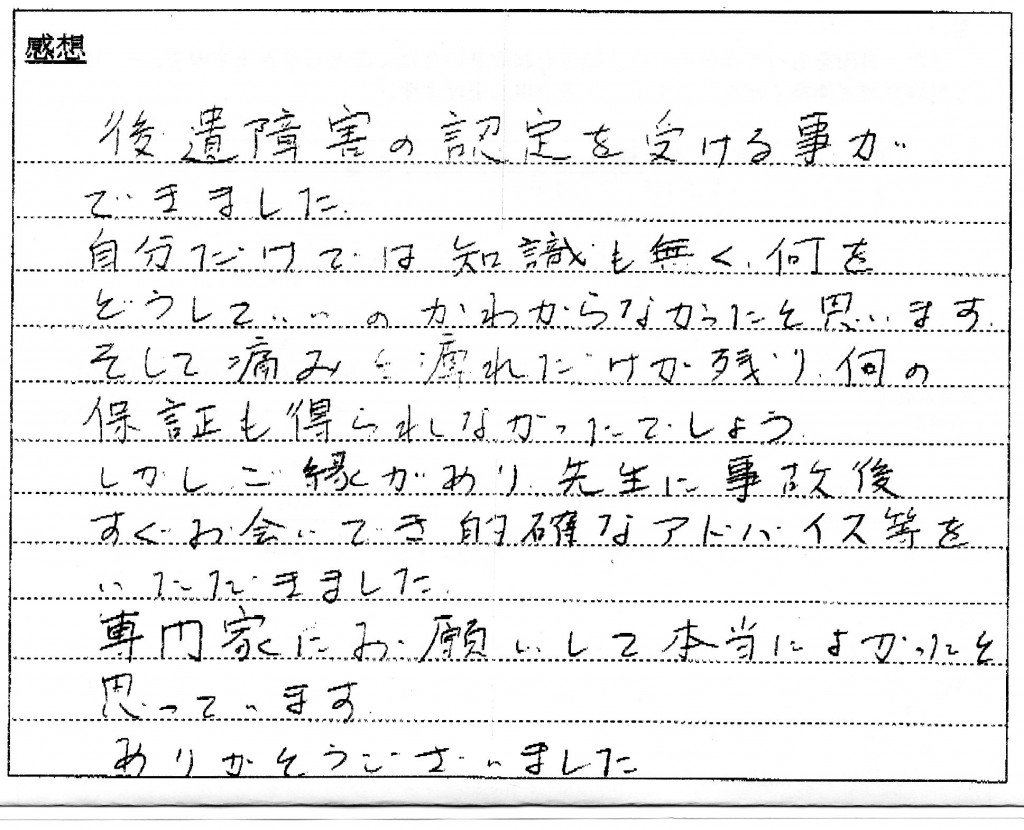 感想
後遺障害の認定を受ける事が
できました.
自分だけでは知識も無く、何を
どうしていいのかわからなかったと思います.
そして痛みと痺れだけが残り、何の
保証も得られしなかったでしょう.
しかしご縁があり、先生に事故後
すぐお会いでき的確なアドバイス等を
いただきました.
専門家にお願いして本当によかったと
思っています.
ありがとうございました